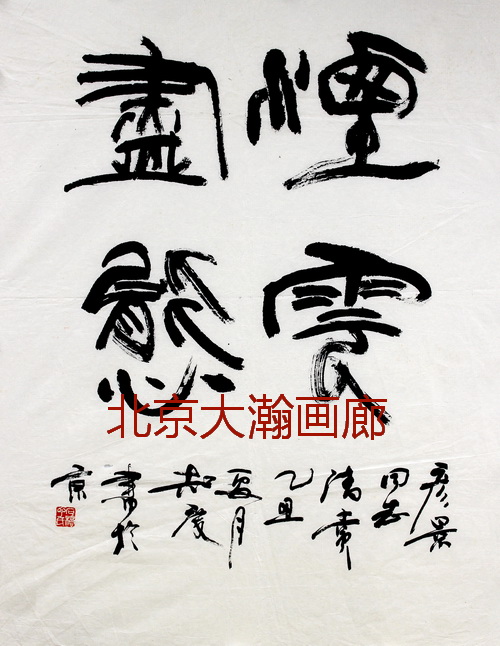 煙雲
盡態
彦景
同志
清賞
乙丑
夏月
叔度
書於
京
北京大瀚画廊